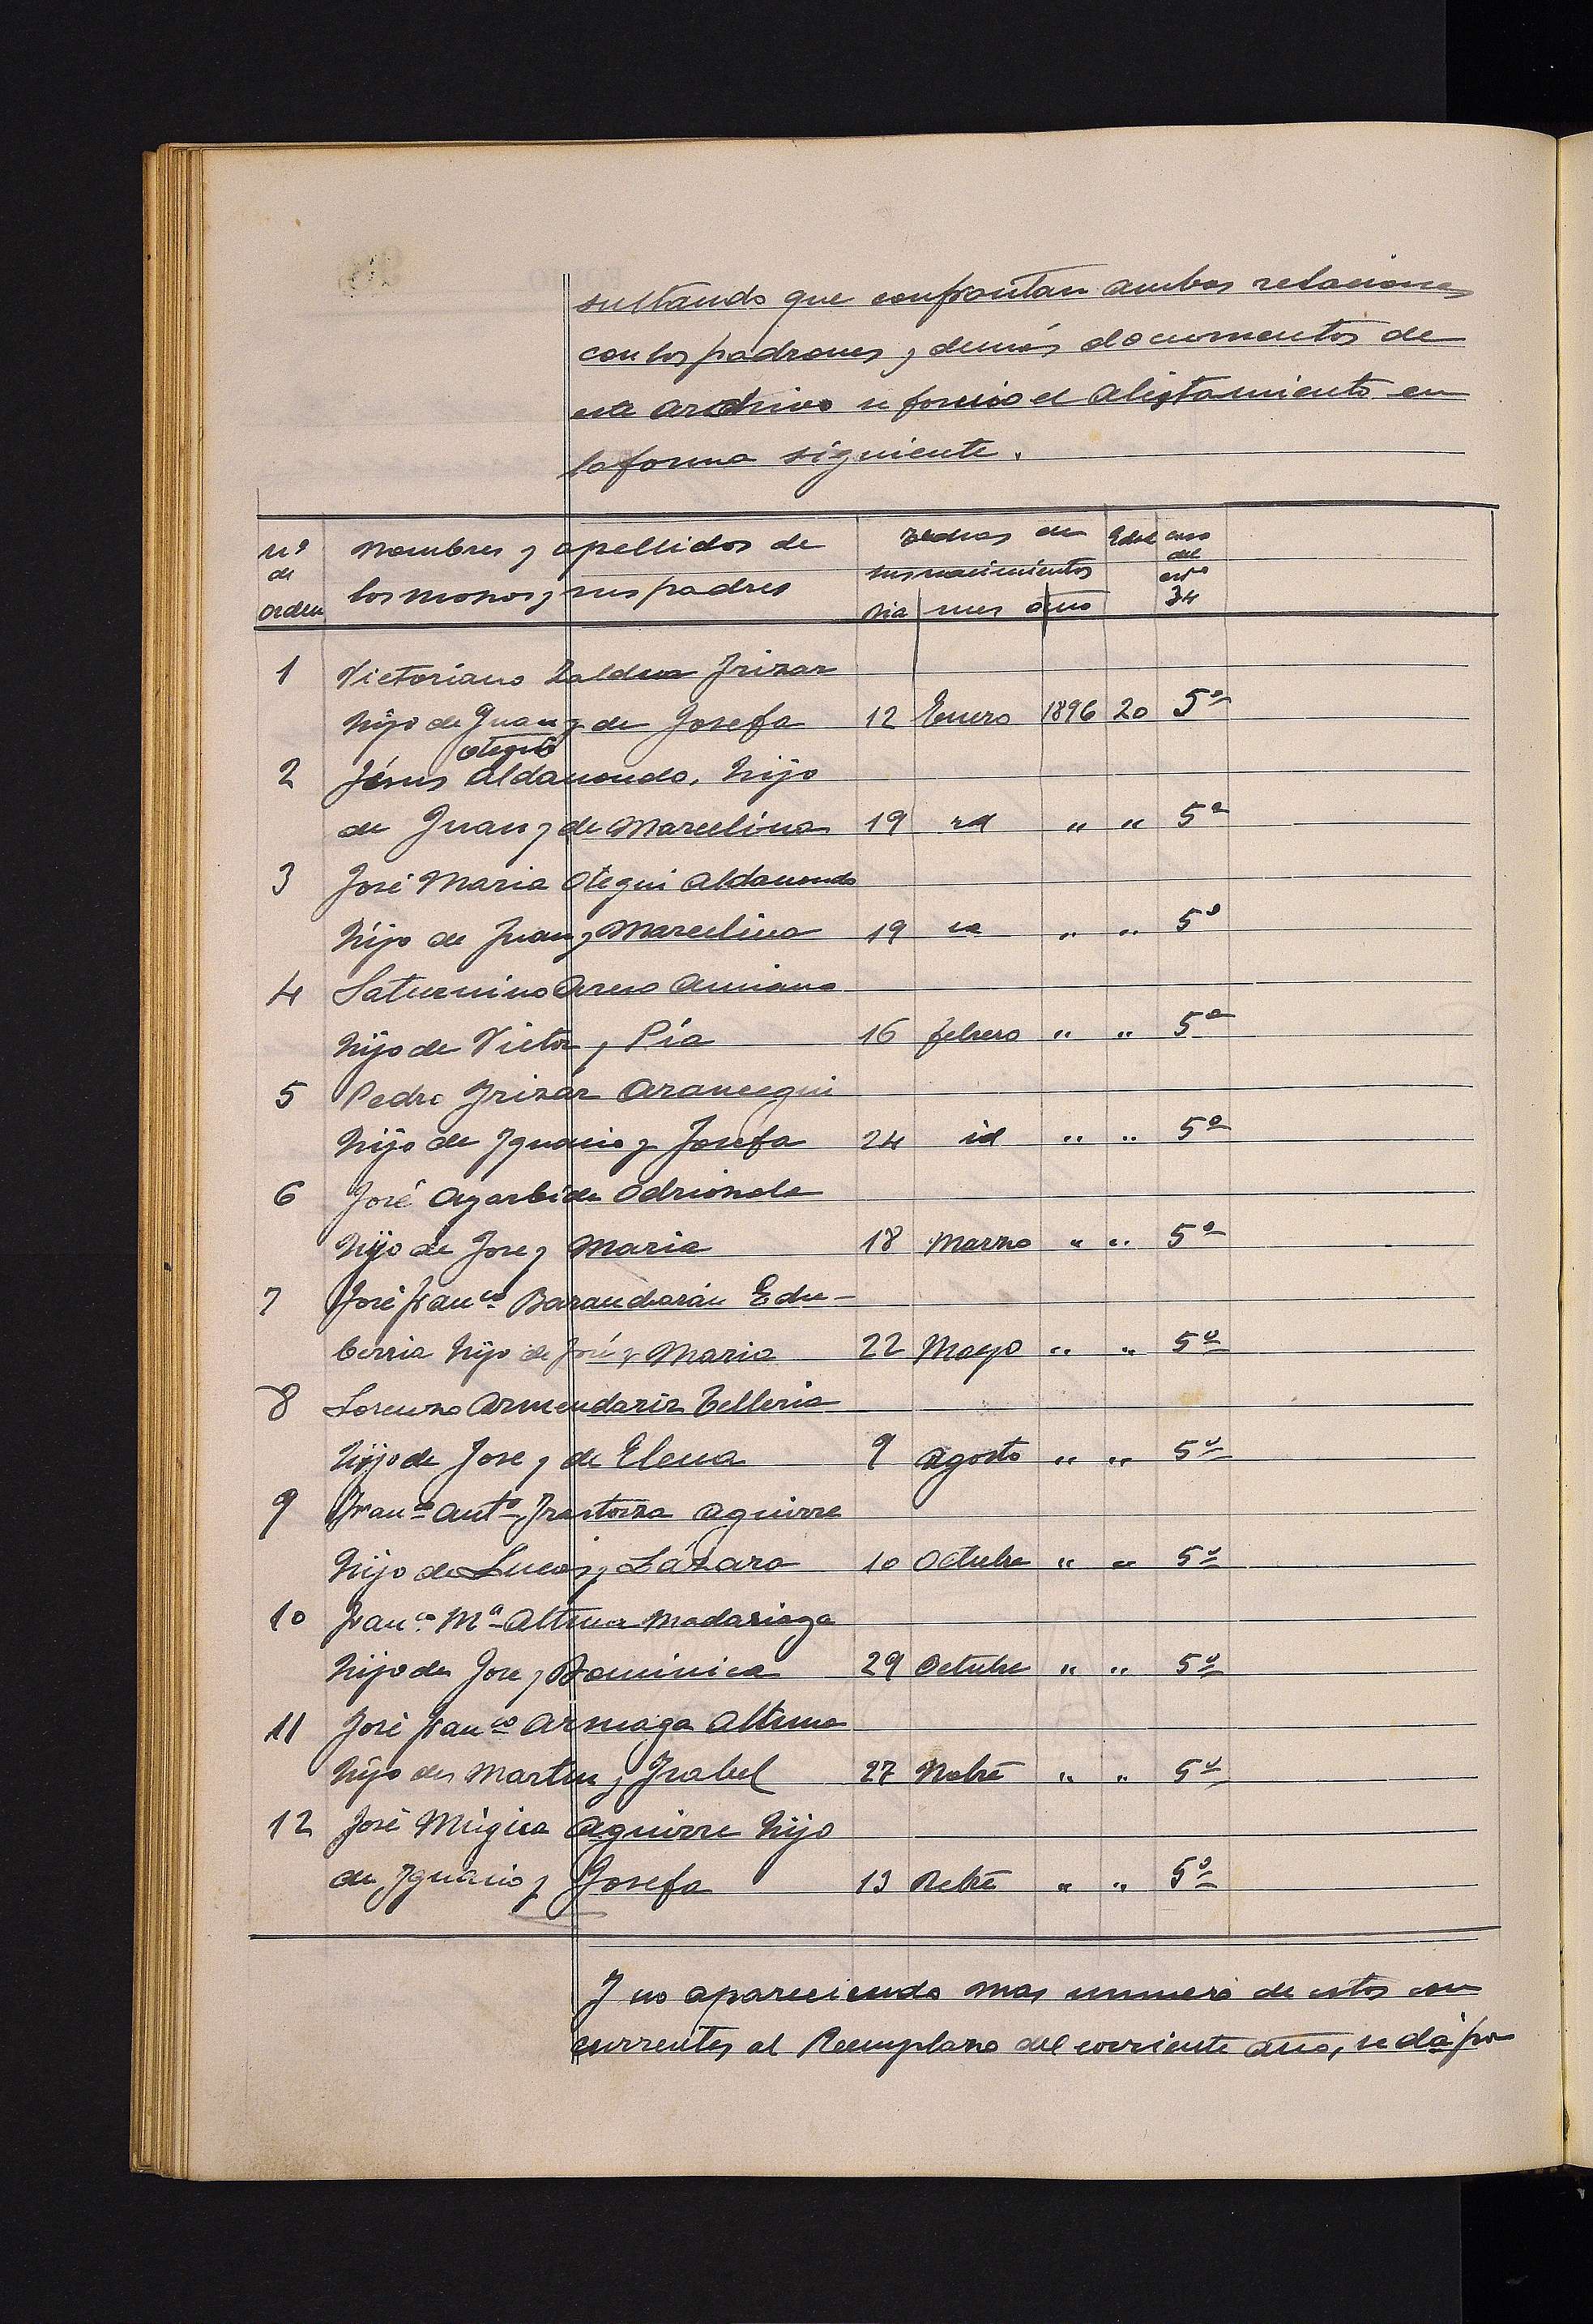 sultando que confrontan ambas relaciones
con los padrones y demás documentos de
este archivo se formó el alistamiento en
la forma siguiente.
nº de orden Nombres y apellidos de los mozos y sus padres Fechas de sus nacimientos Dia mes año Edad caso del artº 34
1 Victoriano Zaldua Irizar
hijo de Juan y de Josefa 12 Enero 1896 20 5º
Otegui
2 Jesus Aldanondo, hijo
de Juan y de Marcelina 19 id " " 5º
3 José Maria Otegui Aldanondo
hijo de Juan y Marcelina 19 id " " 5º
4 Saturnino Arzo Amiano
hijo de Victor y Pía 16 febrero " " 5º
5 Pedro Irizár Arancegui
hijo de Ignacio y Josefa 24 id " " 5º
6 José Ayarbide Odriozola
hijo de Jose y Maria 18 Marzo " " 5º
7 José Franco Barandiarán Eche-
berria hijo de José y Maria 22 Mayo " " 5º
8 Lorenzo Armendariz Telleria
hijo de Jose y de Elena 9 agosto " " 5º
9 Franco Anto Irastorza Aguirre
hijo de Lucas y Lázara 10 Octubre " " 5º
10 Franco Mª Altuna Madariaga
hijo de Jose y Dominica 29 Octubre " " 5º
11 José Franco Arzuaga Altuna
hijo de Martin y Isabel 27 Nobre " " 5º
12 José Múgica Aguirre hijo
de Ignacio y Josefa 13 Debre " " 5º
Y no apareciendo mas numero de estos con
currentes al Reemplazo del corriente año, se dá por